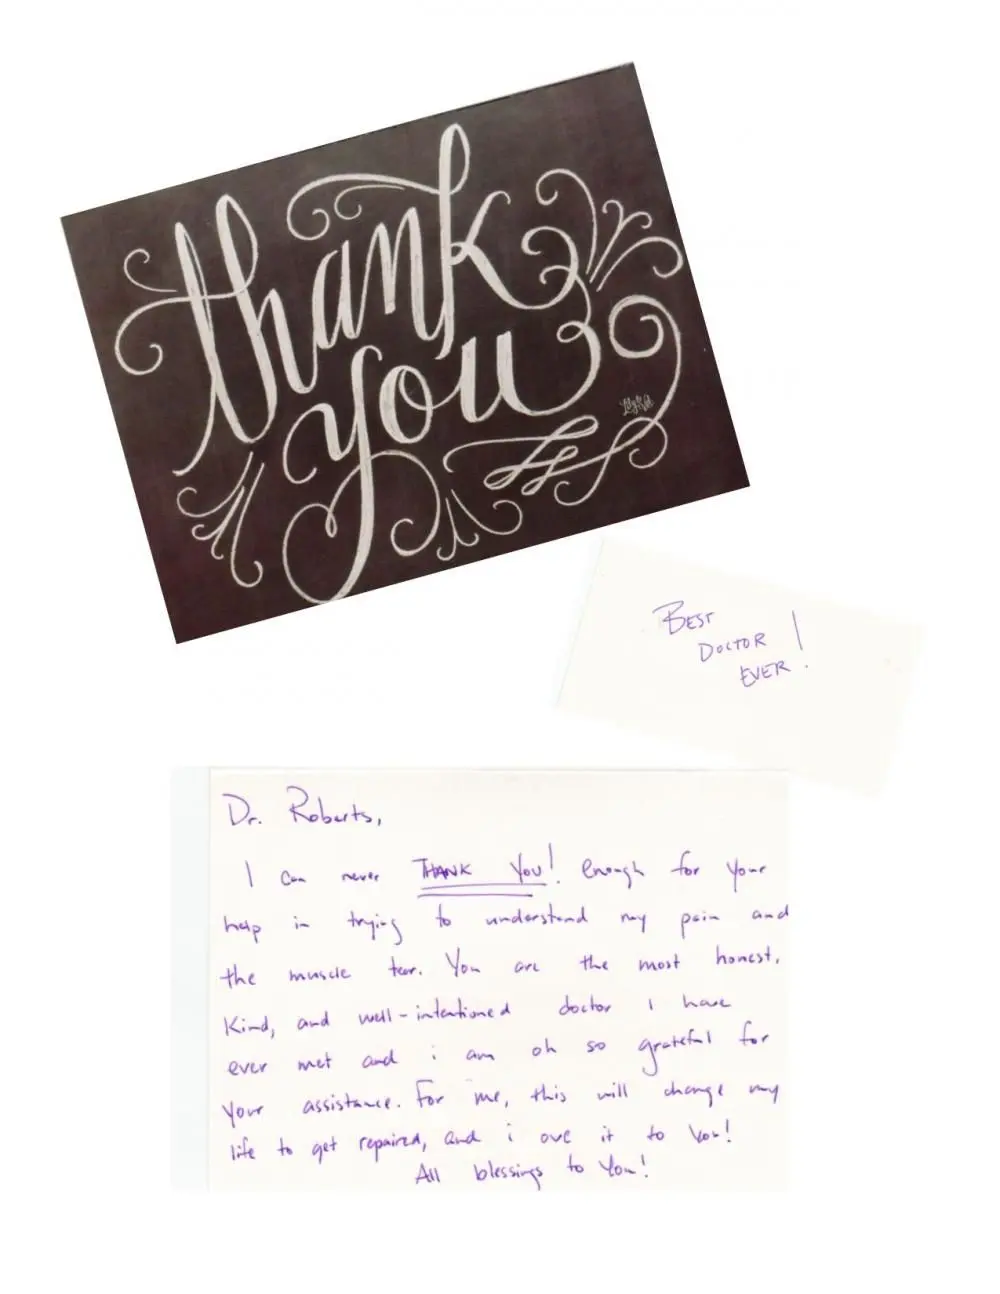 thank
you
Lily & Val
BEST
DOCTOR
EVER!
Dr. Roberts,
I can never THANK YOU! enough for your
help in trying to understand my pain and
the muscle tear. You are the most honest,
Kind, and well-intentioned doctor I have
ever met and i am oh so grateful for
your assistance. For me, this will change my
life to get repaired, and i owe it to You!
All blessings to You!